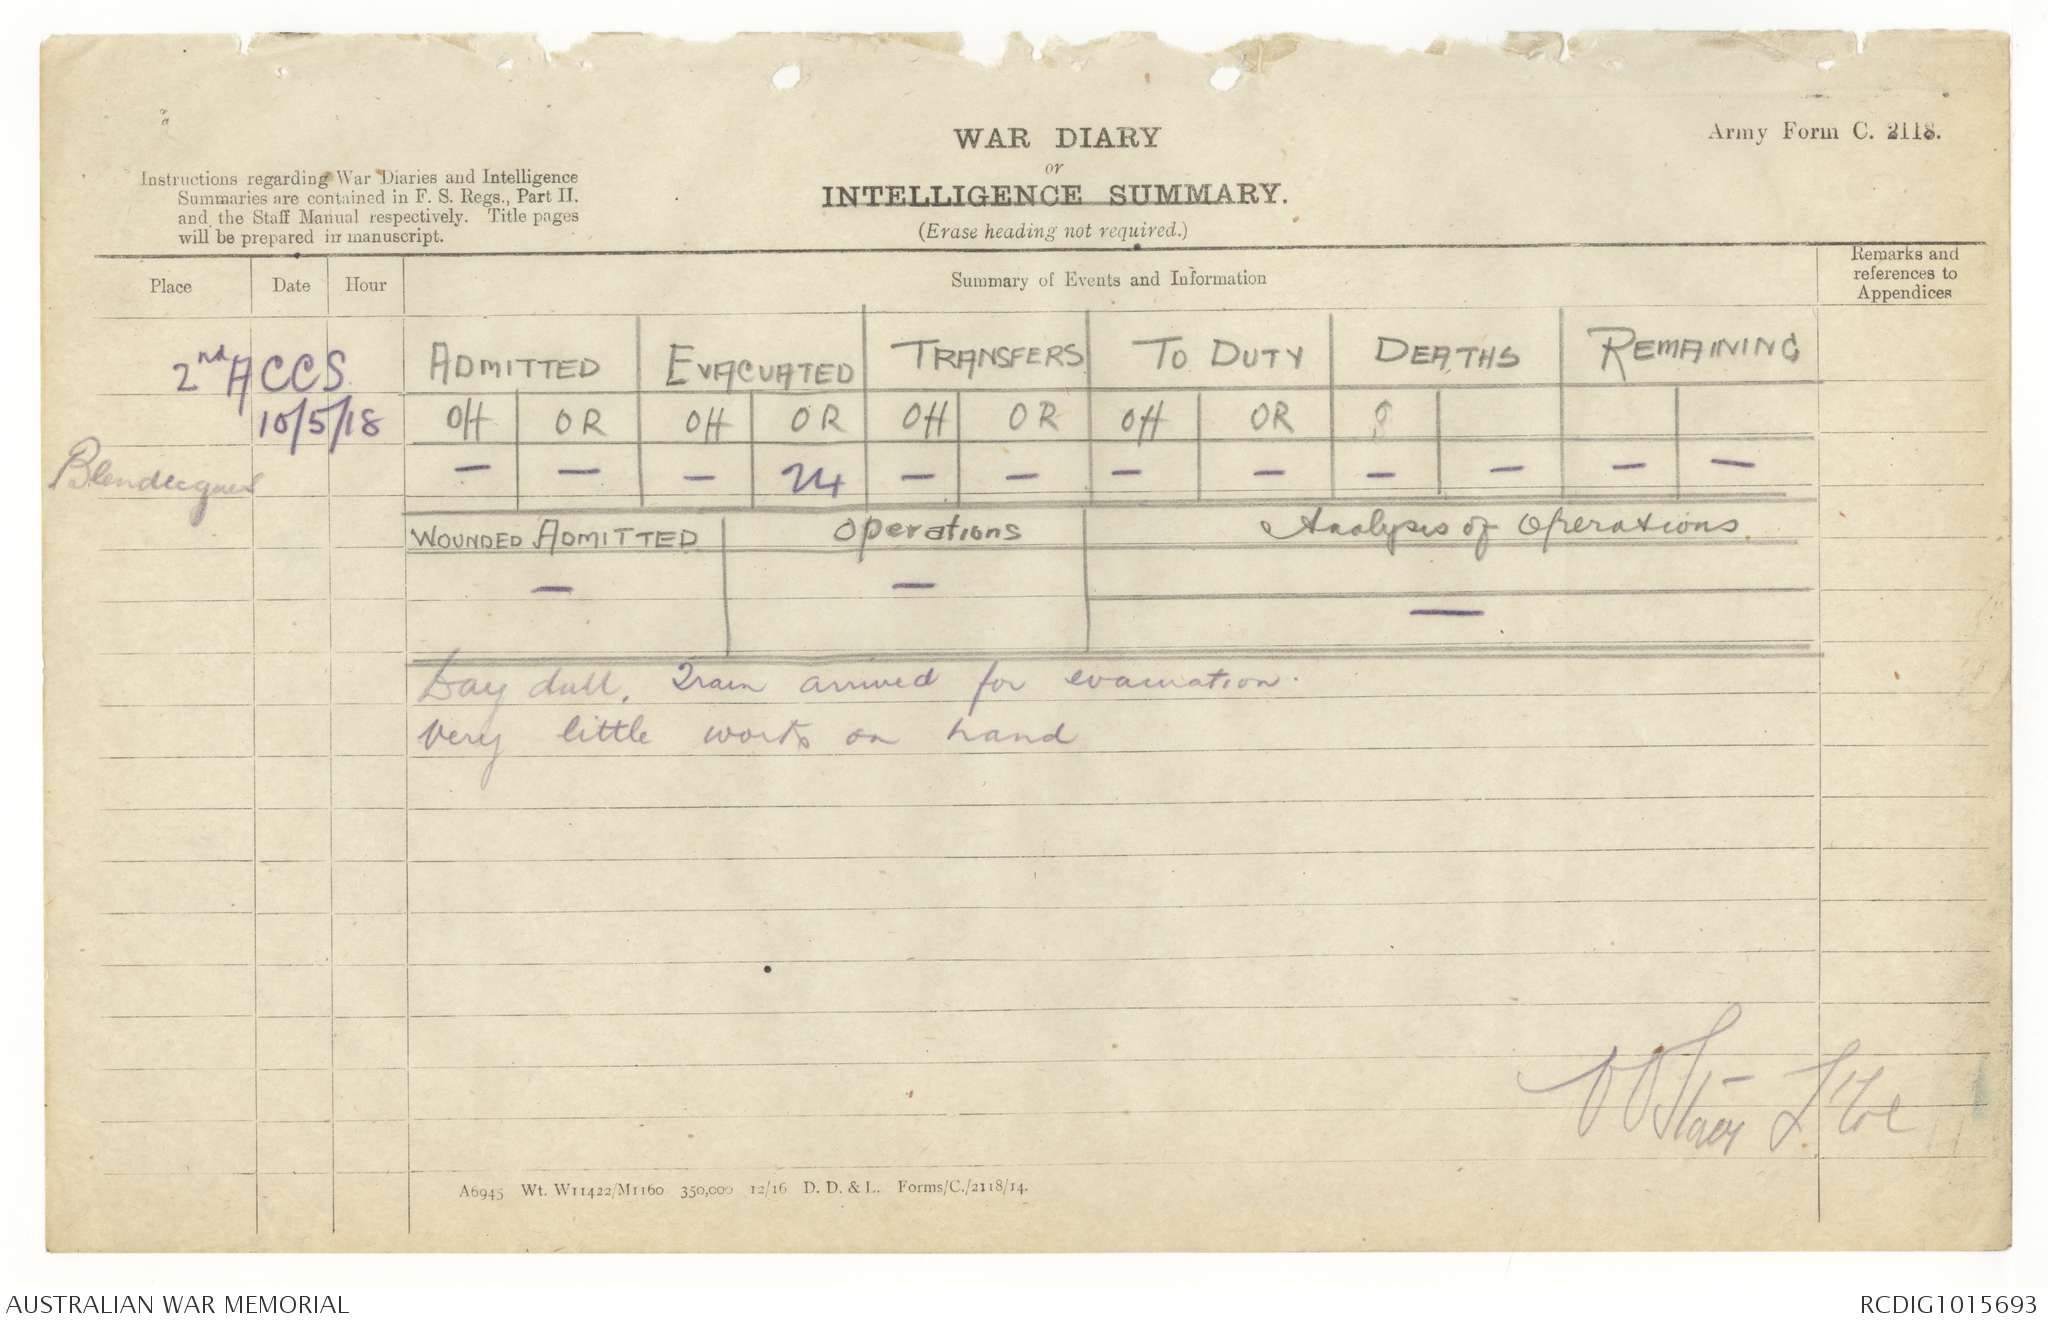 WAR DIARY
or
INTELLIGENCE SUMMARY.
(Erase heading not required.)
Army Form C. 2118.
Instructions regarding War Diaries and Intelligence
Summaries are contained in F. S. Regs., Part II.
and the Staff Manual respectively. Title pages
will be prepared in manuscript.
Place Date Hour Summary of Events and Information Remarks and references to Appendices
2nd ACCS
10/5/18
Blendecques
ADMITTED EVACUATED TRANSFERS TO DUTY DEATHS REMAINING
OFF OR OFF OR OFF OR OFF OR
- - - 24 - - - - - - - -
WOUNDED ADMITTED Operations Analysis of Operations.
- - -
Day dull. Train arrived for evacuation.
Very little work on hand
A6945 Wt. W11422/M1160 350,000 12/16 D. D. & L. Forms/C./2118/14.
AUSTRALIAN WAR MEMORIAL
RCDIG1015693